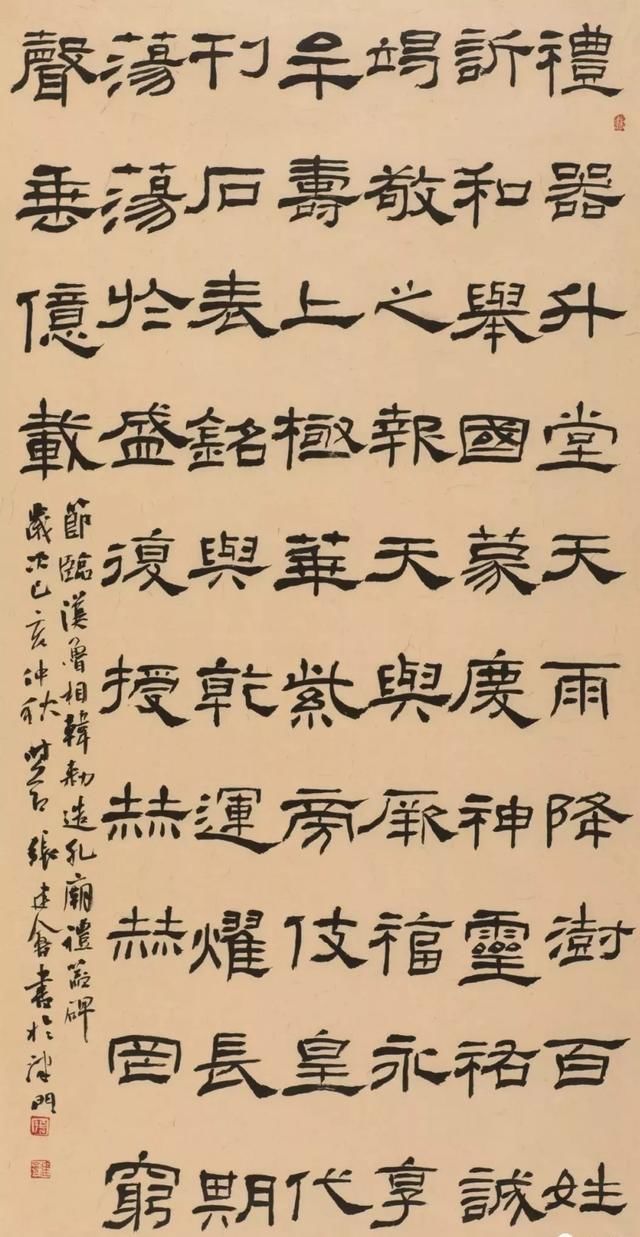 禮器升堂天雨降澍百姓
訢和舉國蒙慶神靈祐誠
竭敬之報天與厥福永享
牟壽上極華紫旁伎皇代
刊石表銘與乾運燿長期
蕩蕩於盛復授赫赫罔窮
聲垂億載
節臨漢魯相韓勑造孔廟禮器碑
歲次己亥仲秋 張建會書於津門